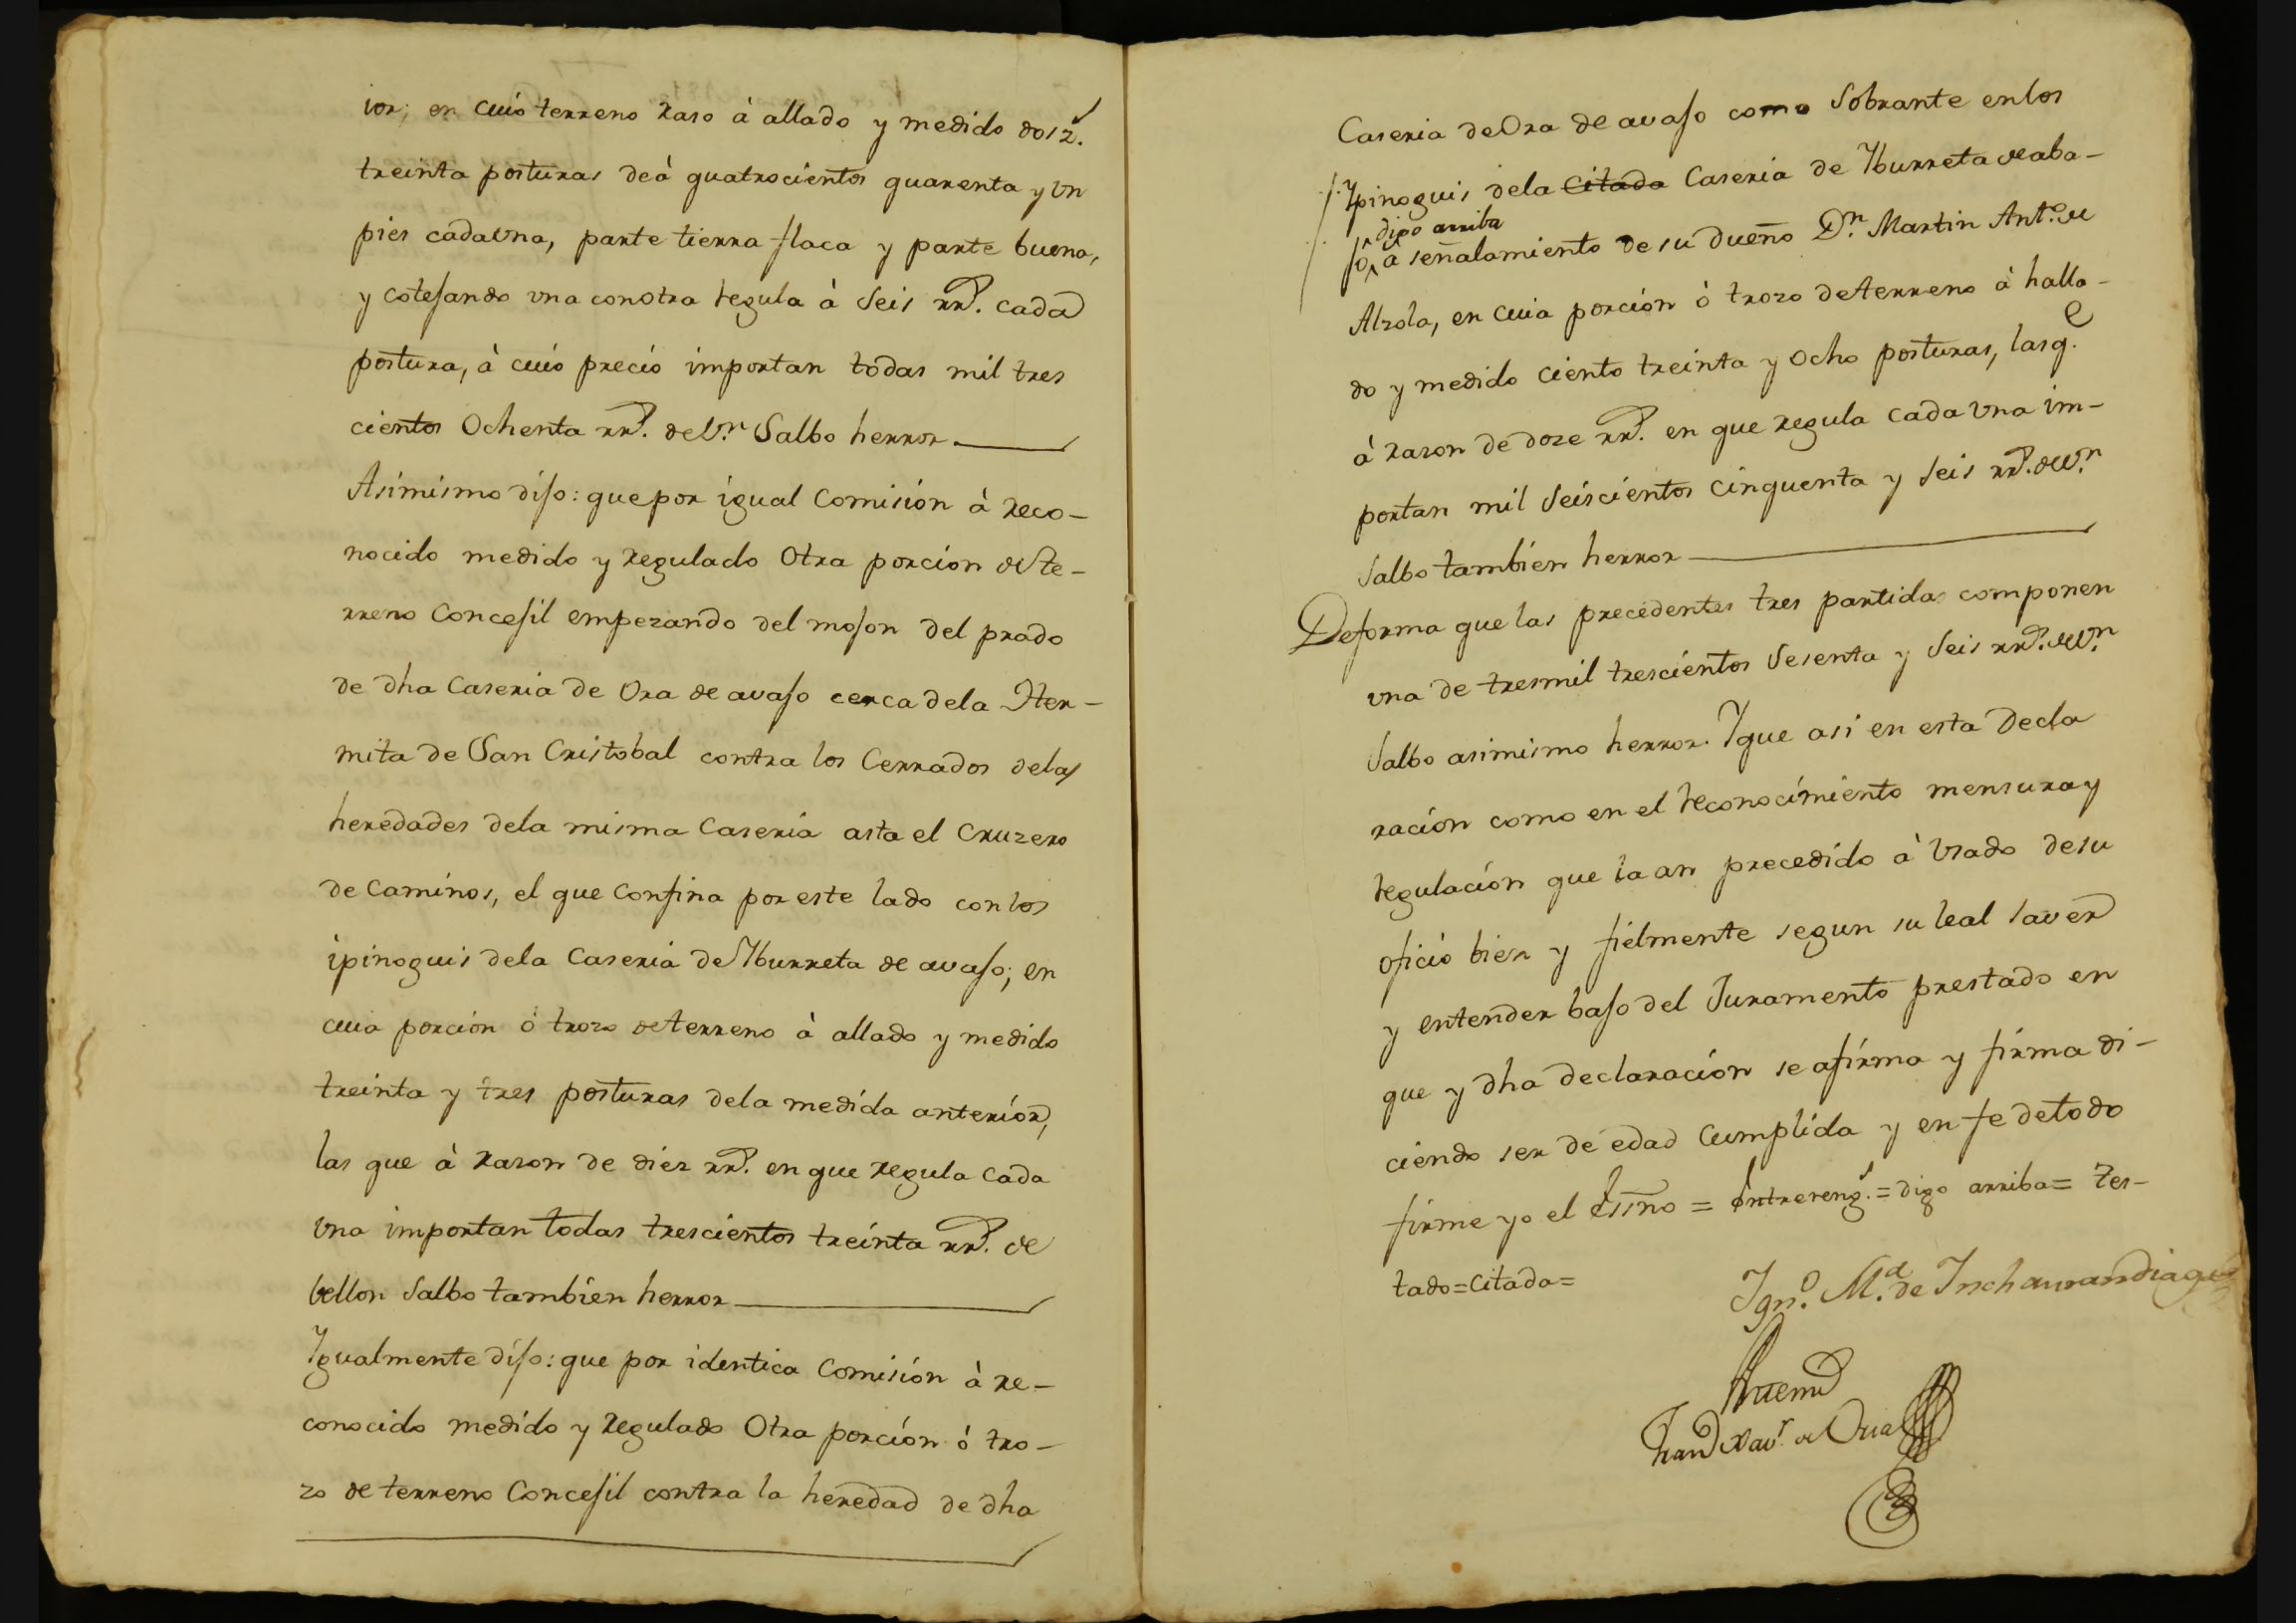 ior; en cuio terreno raso à allado y medido dosz.s
treinta posturas deà quatrocientos quarenta y vn
pies cadavna, parte tierra flaca y parte buena,
y cotejando vna conotra regula à seis rr.s cada
postura, à cuio precio importan todas mil tres
cientos Ochenta rr.s deV.n Salbo herror
Asimismo dijo: quepor igual Comisión à reco-
nocido medido y regulado Otra porción dete-
rreno Concejil empezando del mojon del prado
de dha Caseria de Ora de avajo cerca dela Her-
mita de San Cristobal contra los Cerrados delas
heredades dela misma Caseria asta el Cruzero
de Caminos, el que Confina por este lado conlos
ipinoquis dela Caseria de Yburreta de avajo; en
cuia porción ó trozo deterreno à allado y medido
treinta y tres posturas dela medida anterior,
las que à razon de diez rr.s en que regula cada
vna importan todas trescientos treinta rr.s de
bellon Salbo también herror
Ygualmente dijo: que por identica Comisión à re-
conocido medido y regulado Otra porción ó tro-
zo de terreno Concejil contra la heredad de dha
Caseria deOra de avajo como Sobrante enlos
Ypinoquis dela Citada Caseria de Yburreta deaba-
digo arriba
jo, à señalamiento de su dueño D.n Martin Ant.o de
Alzola, en cuia porción ò trozo deterreno à halla-
do y medido ciento treinta y Ocho posturas, lasq.e
à razon de doze rr.s en que regula cada vna im-
portan mil Seiscientos cinquenta y seis rr.s deV.n
Salbo también herror
Deforma que las precedentes tres partidas componen
vna de tresmil trescientos Sesenta y Seis rr.s deV.n
Salbo asimismo herror. Yque asi en esta Decla
ración como en el reconocimiento mensura y
regulación que la an precedido à Vsado desu
oficio bien y fielmente segun su leal saver
y entender bajo del Juramento prestado en
que y dha declaración se afirma y firma di-
ciendo ser de edad Cumplida y en fe detodo
firme yo el Essno = Entrereng.s = digo arriba = tes-
tado = Citada =
Ygn.o M.a de Inchaurandiaga
Antemi
Fran.co Xav.r de Oria